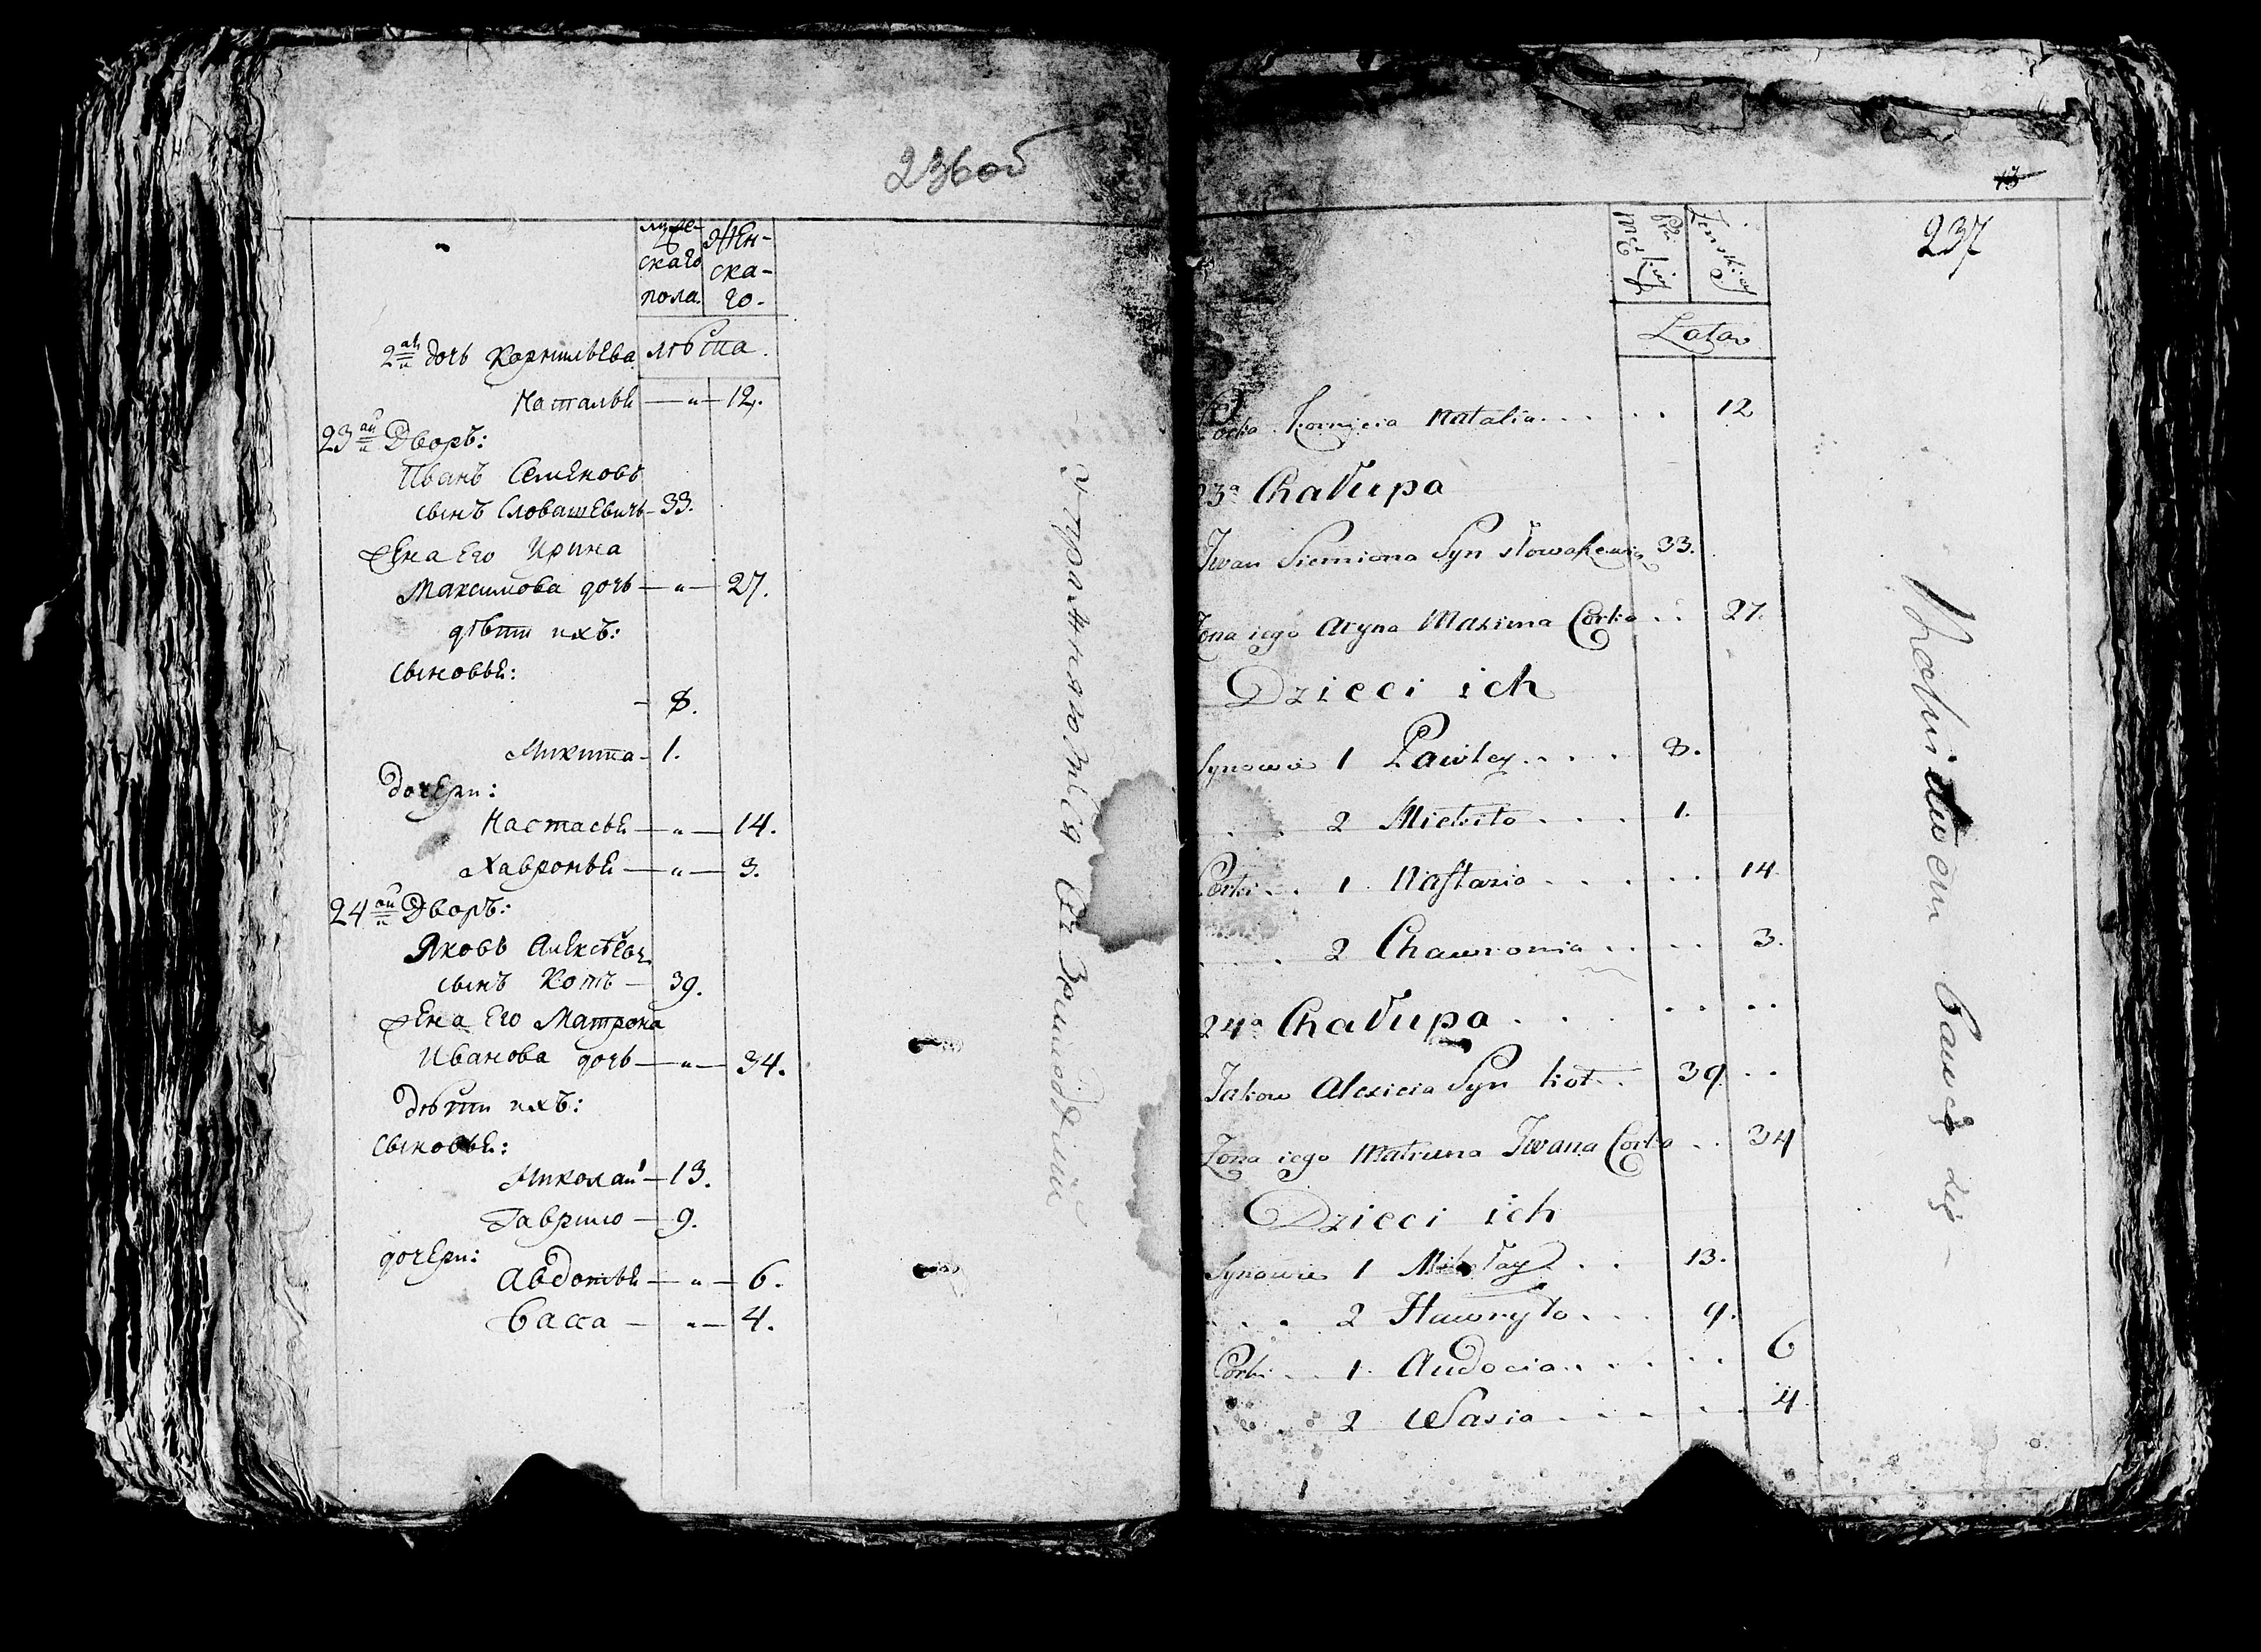 236об
муже-
скаго
пола.
Жен-
ска-
го.
2ая дочь Корнильева лѣта.
Наталья — " — 12.
23ий Дворъ:
Иванъ Семеновъ
сынъ Словашевичь — 33.
Жена Его Ирина
Максимова дочь — " — 27.
дѣти ихъ:
сыновья:
- 8.
Микита - 1.
дочери:
Настасья — " — 14.
Хавронья — " — 3.
24ый Дворъ:
Яковъ Алексѣевъ
сынъ Котъ — 39.
Жена Его Матрона
Иванова дочь — " — 34.
Дѣти ихъ:
сыновья:
Николай — 13.
Гаврило — 9.
дочери:
Авдотья — " — 6.
Васса — " — 4.
13
237
Płci
Męskiey
Żenskiey
Lata
Corka Kornieia Natalia. . . . . 12
23a Chałupa
Iwan Siemiona Syn Słowaszewicz 33.
Żona iego Aryna Maxima Corka . . 27.
Dzieci ich
Synowie 1 Pawley. . . . 8.
. . 2 Mickito . . . 1.
Corki . . 1. Nastazia . . . . . . 14.
. . . 2 Chawronia . . . . 3.
24a Chałupa . . . . . . .
Jakow Alexieia Syn Kot . . 39 . .
Żona iego Matruna Iwana Corka . . 34
Dzieci ich
Synowie 1 Mikołay . . . 13.
. . . 2 Hawryło . . . 9.
Corki . . 1. Audocia . . . . . . 6
. . . 2 Wasia . . . . . . 4.